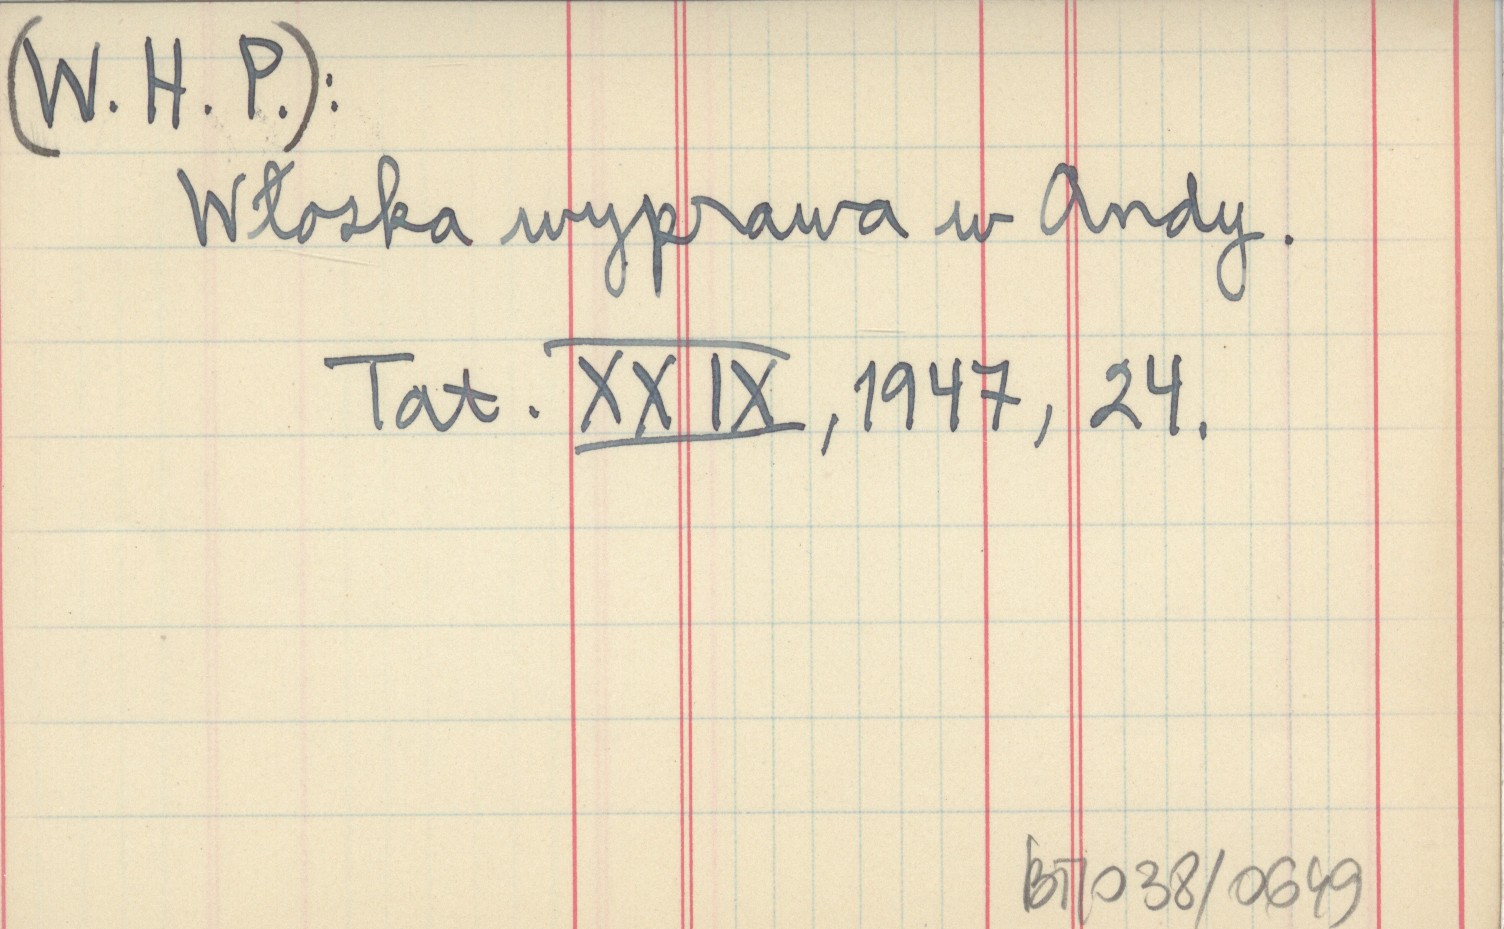 (W. H. P.):
Włoska wyprawa w Andy.
Tat. XXIX, 1947, 24.
BT/038/0649